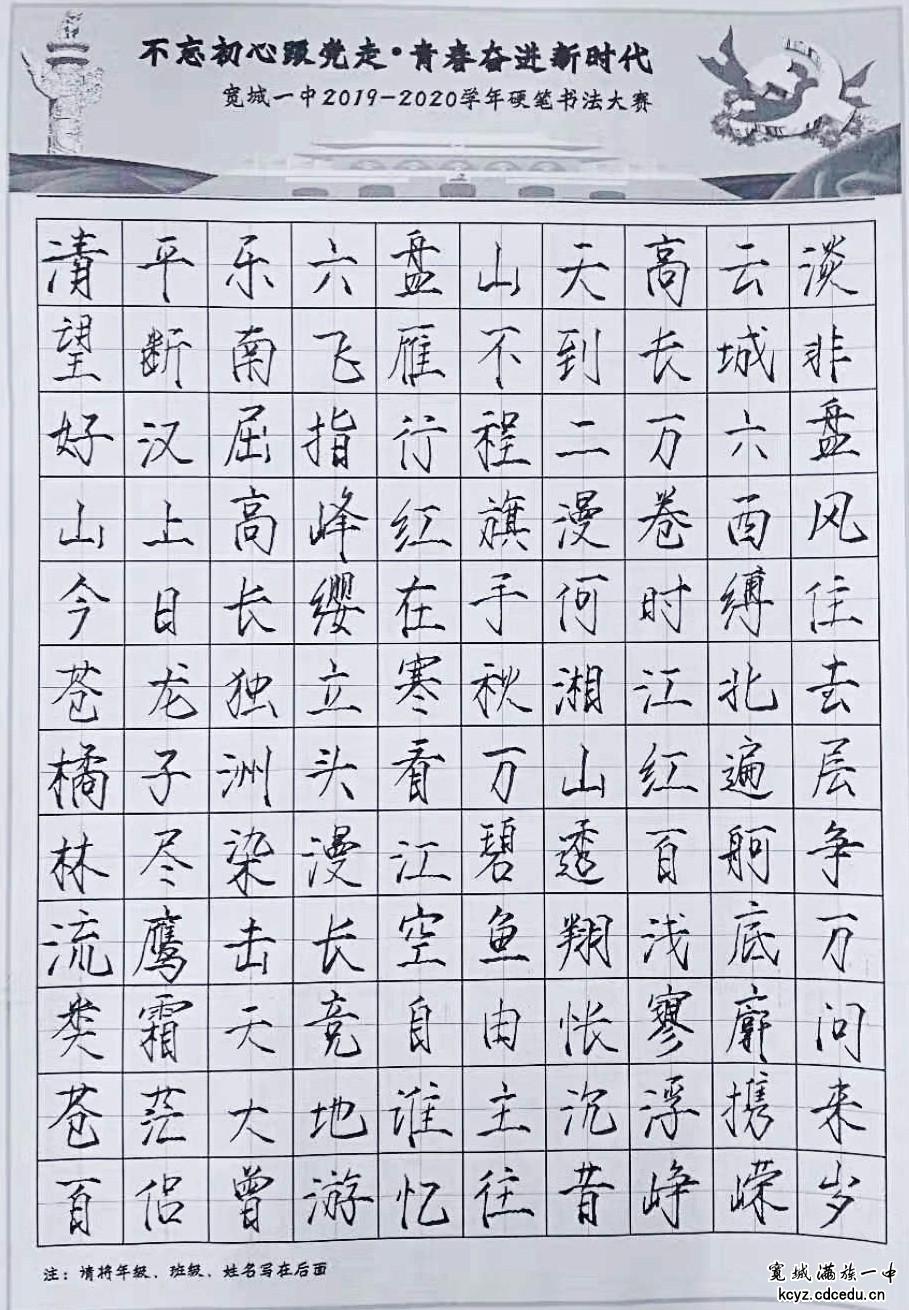 不忘初心跟党走·青春奋进新时代
宽城一中2019-2020学年硬笔书法大赛
清平乐六盘山天高云淡
望断南飞雁不到长城非
好汉屈指行程二万六盘
山上高峰红旗漫卷西风
今日长缨在手何时缚住
苍龙独立寒秋湘江北去
橘子洲头看万山红遍层
林尽染漫江碧透百舸争
流鹰击长空鱼翔浅底万
类霜天竞自由怅寥廓问
苍茫大地谁主沉浮携来
百侣曾游忆往昔峥嵘岁
注：请将年级、班级、姓名写在后面
宽城满族一中
kcyz.cdcedu.cn